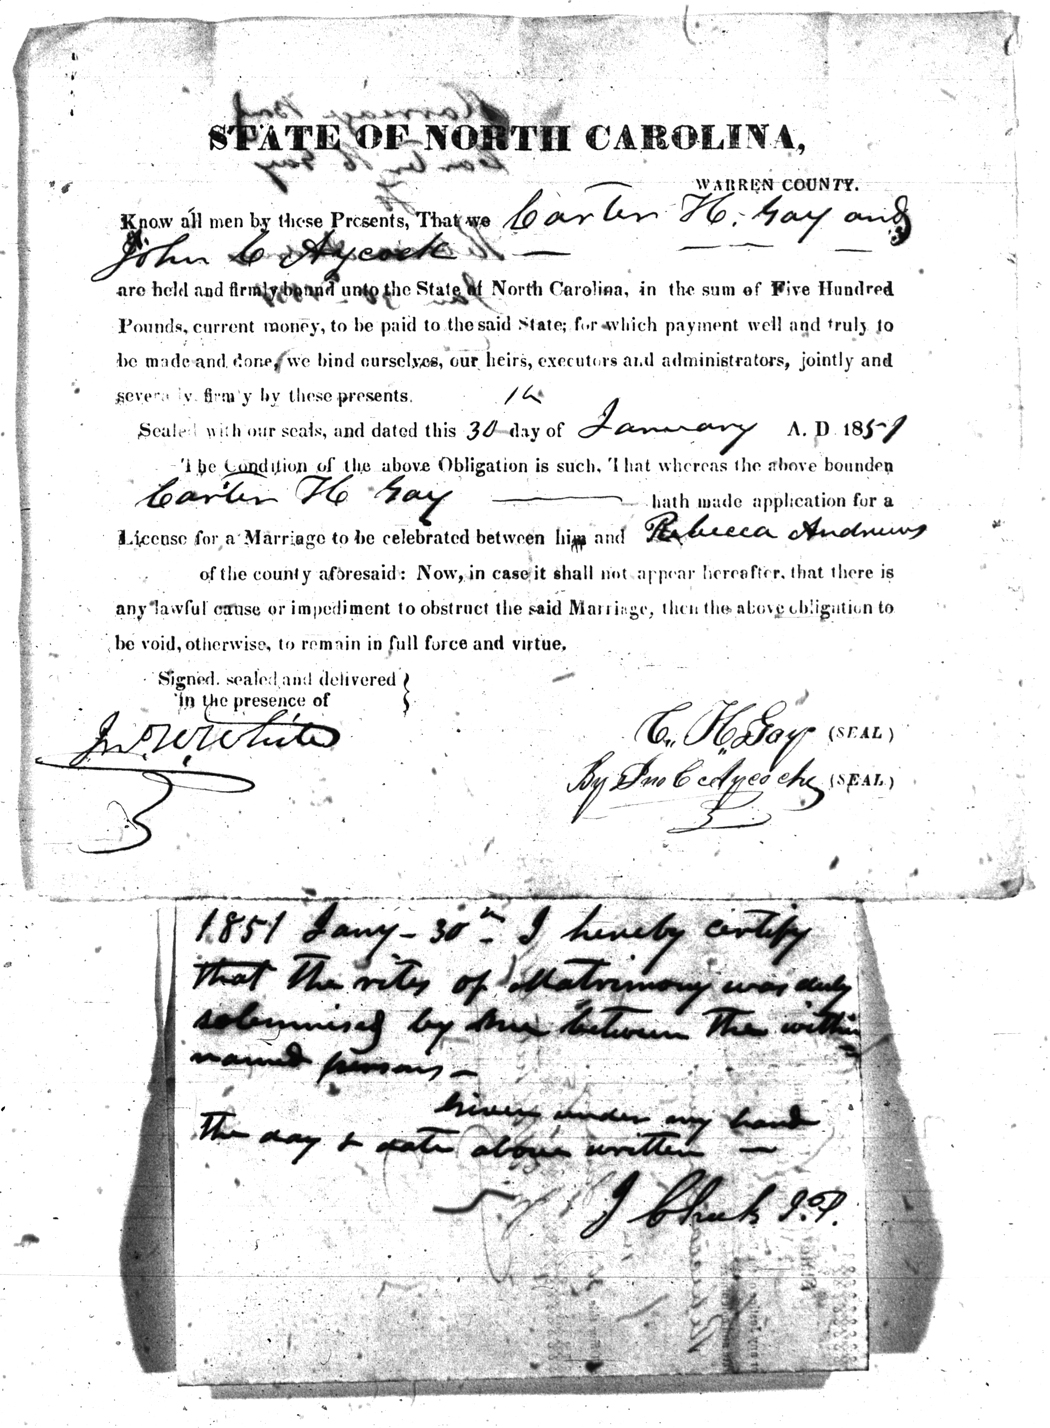 STATE OF NORTH CAROLINA,
WARREN COUNTY.
Know all men by these Presents, That we Carter H. Gay and
John C Aycock
are held and firmly bound unto the State of North Carolina, in the sum of Five Hundred
Pounds, current money, to be paid to the said State; for which payment well and truly to
be made and done, we bind ourselves, our heirs, executors and administrators, jointly and
severally, firmly by these presents.
Sealed with our seals, and dated this 30th day of January A. D. 1851
The Condition of the above Obligation is such, That whereas the above bounden
Carter H Gay hath made application for a
License for a Marriage to be celebrated between him and Rebecca Andrews
of the county aforesaid: Now, in case it shall not appear hereafter, that there is
any lawful cause or impediment to obstruct the said Marriage, then the above obligation to
be void, otherwise, to remain in full force and virtue.
Signed, sealed and delivered
in the presence of
Jno. W. White
C. H. Gay (SEAL)
By Jno C Aycocke (SEAL)
1851 Jany - 30th - I hereby certify
that the rites of Matrimony was duly
solemnised by me between the within
named persons -
Given under my hand
the day & date above written -
J Cheek J.P.